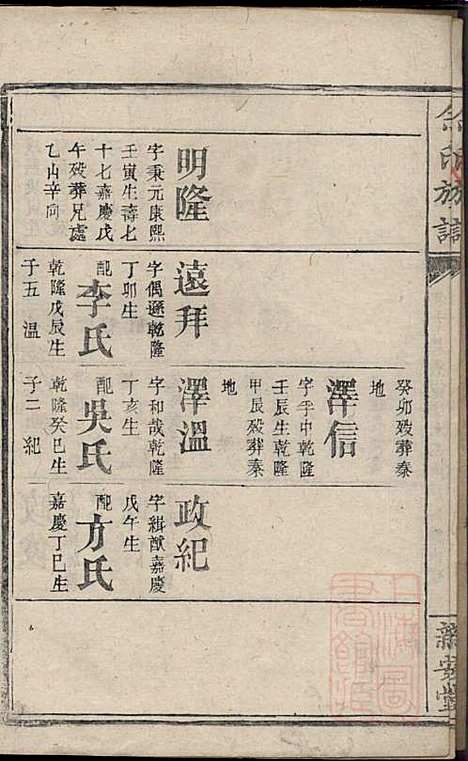 氏族譜
癸卯殁葬秦
地
澤信
字孚中乾隆
壬辰生乾隆
甲辰殁葬秦
地
明隆
字秉元康熙
壬寅生壽七
十七嘉慶戊
午殁葬兄處
乙山辛向
遠拜
字偶遜乾隆
丁卯生
配李氏
乾隆戊辰生
子五 溫
澤溫
字和哉乾隆
丁亥生
配吳氏
乾隆癸巳生
子二 紀
政紀
字緝猷嘉慶
戊午生
配方氏
嘉慶丁巳生
上海圖書館藏
新安堂